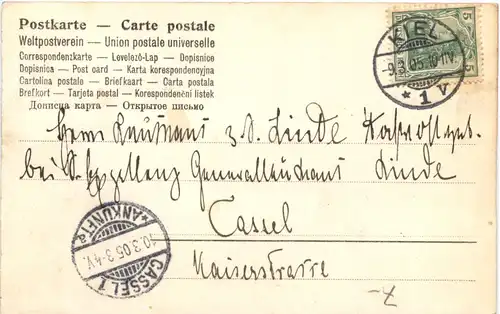 Postkarte — Carte postale
Weltpostverein — Union postale universelle
Correspondenzkarte — Levelező-Lap — Dopisnice
Dopisnica — Post card — Karta korespondencyjna
Cartolina postale — Briefkaart — Carta postala
Brefkort — Tarjeta postal — Korespondenční listek
Дописна карта — Открытое письмо
5
5
KIEL
9.3.05.10-11V.
* 1 v
Herrn Leutnant z. S. Linde
bei S. Exzellenz Generalleutnant Linde
Cassel
Kaiserstrasse
CASSEL 1
10.3.05 3-4V.
*ANKUNFT*